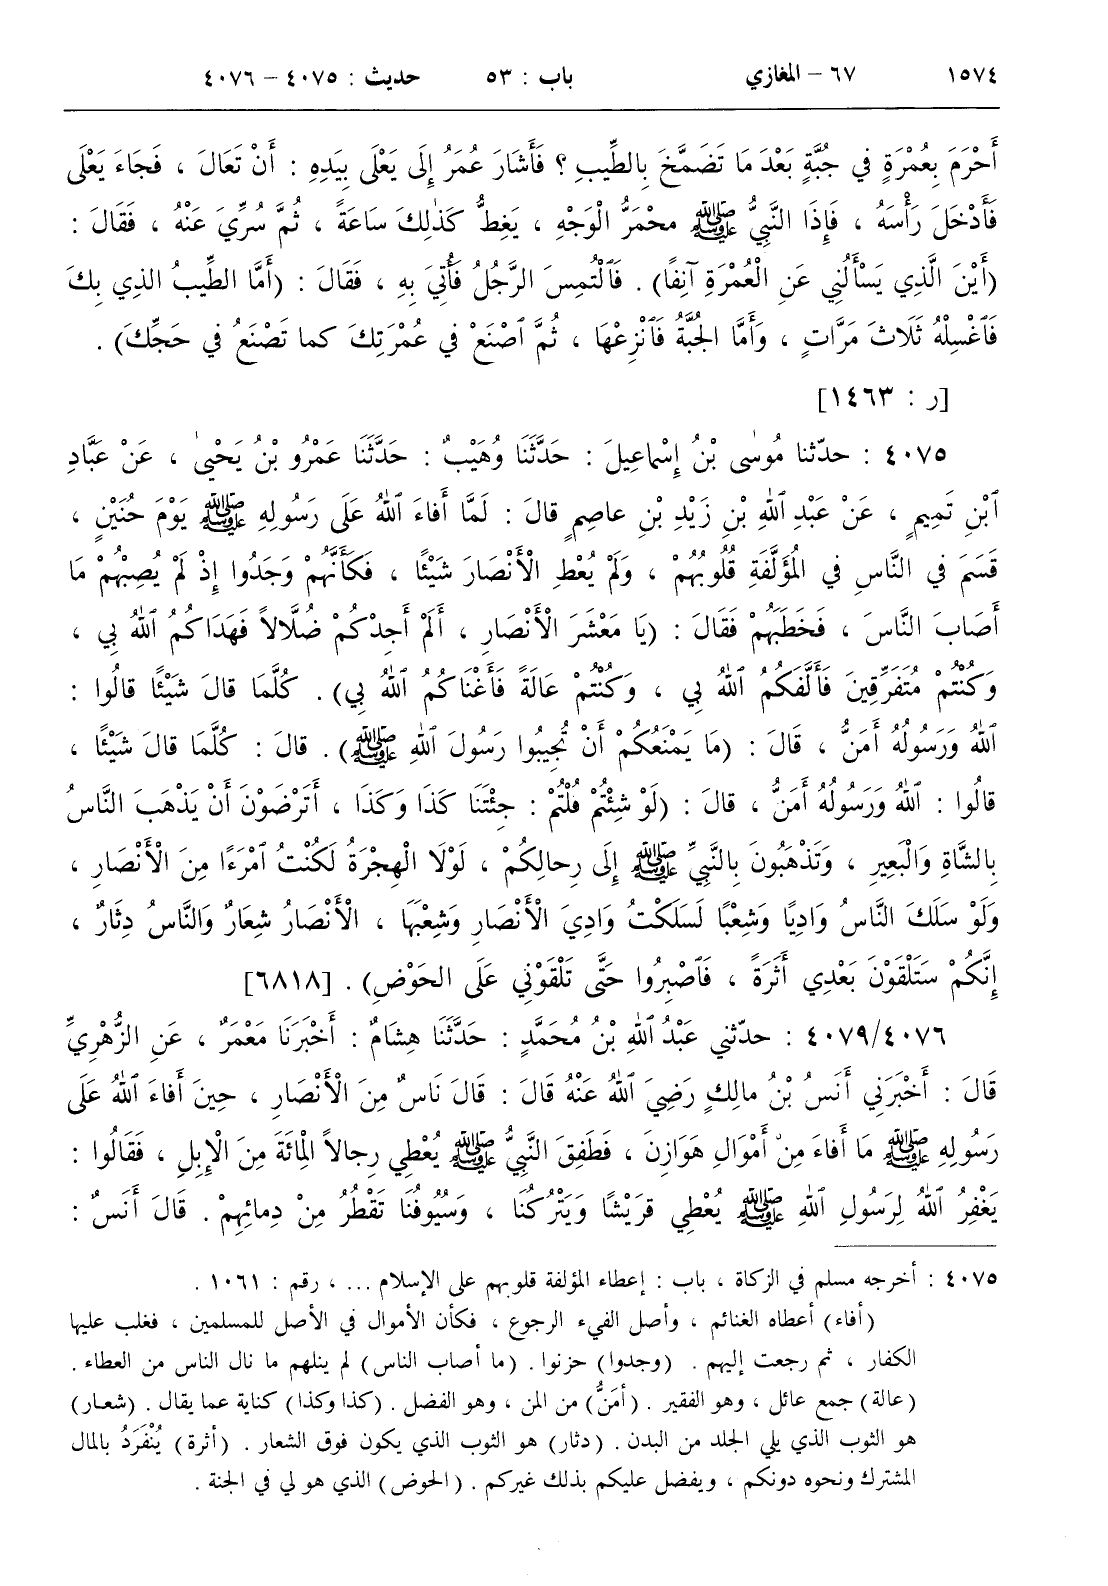 ١٥٧٤ ٦٧ – المغازي باب : ٥٣ حديث : ٤٠٧٥ – ٤٠٧٦
أَحْرَمَ بِعُمْرَةٍ في جُبَّةٍ بَعْدَ مَا تَضَمَّخَ بِالطِّيبِ ؟ فَأَشَارَ عُمَرُ إِلَى يَعْلَى بِيَدِهِ : أَنْ تَعَالَ ، فَجَاءَ يَعْلَى
فَأَدْخَلَ رَأْسَهُ ، فَإِذَا النَّبِيُّ ﷺ محْمَرُّ الْوَجْهِ ، يَغِطُّ كَذٰلِكَ سَاعَةً ، ثُمَّ سُرِّيَ عَنْهُ ، فَقَالَ :
(أَيْنَ الَّذِي يَسْأَلُنِي عَنِ الْعُمْرَةِ آنِفًا) . فَٱلْتُمِسَ الرَّجُلُ فَأُتِيَ بِهِ ، فَقَالَ : (أَمَّا الطِّيبُ الذِي بِكَ
فَٱغْسِلْهُ ثَلَاثَ مَرَّاتٍ ، وَأَمَّا الجُبَّةُ فَٱنْزِعْهَا ، ثُمَّ ٱصْنَعْ في عُمْرَتِكَ كما تَصْنَعُ في حَجِّكَ) .
[ر : ١٤٦٣]
٤٠٧٥ : حدّثنا مُوسٰى بْنُ إِسْماعِيلَ : حَدَّثَنَا وُهَيْبٌ : حَدَّثَنَا عَمْرُو بْنُ يَحْيىٰ ، عَنْ عَبَّادِ
ٱبْنِ تَمِيمٍ ، عَنْ عَبْدِ ٱللهِ بْنِ زَيْدِ بْنِ عاصِمٍ قالَ : لَمَّا أَفاءَ ٱللهُ عَلَى رَسُولِهِ ﷺ يَوْمَ حُنَيْنٍ ،
قَسَمَ في النَّاسِ في المُؤَلَّفَةِ قُلُوبُهُمْ ، وَلَمْ يُعْطِ الْأَنْصَارَ شَيْئًا ، فَكَأَنَّهُمْ وَجَدُوا إِذْ لَمْ يُصِبْهُمْ مَا
أَصَابَ النَّاسَ ، فَخَطَبَهُمْ فَقَالَ : (يَا مَعْشَرَ الْأَنْصَارِ ، أَلَمْ أَجِدْكُمْ ضُلَّالاً فَهَدَاكُمُ ٱللهُ بِي ،
وَكُنْتُمْ مُتَفَرِّقِينَ فَأَلَّفَكُمُ ٱللهُ بِي ، وَكُنْتُمْ عَالَةً فَأَغْنَاكُمُ ٱللهُ بِي) . كُلَّمَا قالَ شَيْئًا قالُوا :
ٱللهُ وَرَسُولُهُ أَمَنُّ ، قَالَ : (مَا يَمْنَعُكُمْ أَنْ تُجِيبُوا رَسُولَ ٱللهِ ﷺ) . قالَ : كُلَّمَا قالَ شَيْئًا ،
قالُوا : ٱللهُ وَرَسُولُهُ أَمَنُّ ، قالَ : (لَوْ شِئْتُمْ قُلْتُمْ : جِئْتَنَا كَذَا وَكَذَا ، أَتَرْضَوْنَ أَنْ يَذْهَبَ النَّاسُ
بِالشَّاةِ وَالْبَعِيرِ ، وَتَذْهَبُونَ بِالنَّبِيِّ ﷺ إِلَى رِحالِكُمْ ، لَوْلَا الْهِجْرَةُ لَكُنْتُ ٱمْرَءًا مِنَ الْأَنْصَارِ ،
وَلَوْ سَلَكَ النَّاسُ وَادِيًا وَشِعْبًا لَسَلَكْتُ وَادِيَ الْأَنْصَارِ وَشِعْبَهَا ، الْأَنْصَارُ شِعَارٌ وَالنَّاسُ دِثَارٌ ،
إِنَّكُمْ سَتَلْقَوْنَ بَعْدِي أَثَرَةً ، فَٱصْبِرُوا حَتَّى تَلْقَوْنِي عَلَى الحَوْضِ) . [٦٨١٨]
٤٠٧٩/٤٠٧٦ : حدّثني عَبْدُ ٱللهِ بْنُ مُحَمَّدٍ : حَدَّثَنَا هِشَامٌ : أَخْبَرَنَا مَعْمَرٌ ، عَنِ الزُّهْرِيِّ
قَالَ : أَخْبَرَنِي أَنَسُ بْنُ مالِكٍ رَضِيَ ٱللهُ عَنْهُ قَالَ : قَالَ نَاسٌ مِنَ الْأَنْصَارِ ، حِينَ أَفاءَ ٱللهُ عَلَى
رَسُولِهِ ﷺ ما أَفاءَ مِنْ أَمْوَالِ هَوَازِنَ ، فَطَفِقَ النَّبِيُّ ﷺ يُعْطِي رِجالاً الْمِائَةَ مِنَ الْإِبِلِ ، فَقَالُوا :
يَغْفِرُ ٱللهُ لِرَسُولِ ٱللهِ ﷺ يُعْطِي قُرَيْشًا وَيَتْرُكُنَا ، وَسُيُوفُنَا تَقْطُرُ مِنْ دِمائِهِمْ . قَالَ أَنَسٌ :
٤٠٧٥ : أخرجه مسلم في الزكاة ، باب : إعطاء المؤلفة قلوبهم على الإسلام ... ، رقم : ١٠٦١ .
(أفاء) أعطاه الغنائم ، وأصل الفيء الرجوع ، فكأن الأموال في الأصل للمسلمين ، فغلب عليها
الكفار ، ثم رجعت إليهم . (وجدوا) حزنوا . (ما أصاب الناس) لم ينلهم ما نال الناس من العطاء .
(عالة) جمع عائل ، وهو الفقير . (أمَنُّ) من المن ، وهو الفضل . (كذا وكذا) كناية عما يقال . (شعار)
هو الثوب الذي يلي الجلد من البدن . (دثار) هو الثوب الذي يكون فوق الشعار . (أثرة) يُنْفَرَدُ بالمال
المشترك ونحوه دونكم ، ويفضل عليكم بذلك غيركم . (الحوض) الذي هو لي في الجنة .